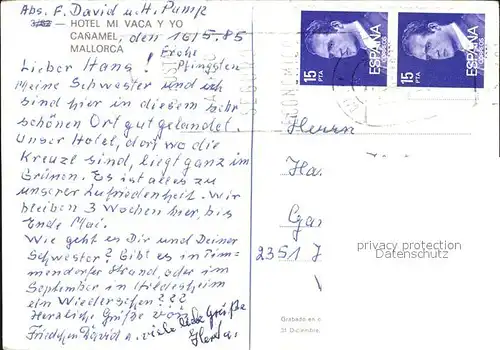 Abs. F. David u. H. Pump
HOTEL MI VACA Y YO
CAÑAMEL, den 16/5.85
MALLORCA
Frohe
Pfingsten
Lieber Hans!
Meine Schwester und ich
sind hier in diesem sehr
schönen Ort gut gelandet.
Unser Hotel, dort wo die
Kreuze sind, liegt ganz im
Grünen. Es ist alles zu
unserer Zufriedenheit. Wir
bleiben 3 Wochen hier, bis
Ende Mai.
Wie geht es Dir und Deiner
Schwester? Gibt es in Tim-
mendorfer Strand, oder im
September in Hildesheim
ein Wiedersehen???
Herzliche Grüße von
Friedchen David u. viele liebe Grüße
Herta.
15
PTA
ESPAÑA
CORREOS
15
PTA
ESPAÑA
CORREOS
Herrn
Ha
2351
privacy protection
Datenschutz
Grabado en c
31 Diciembre,